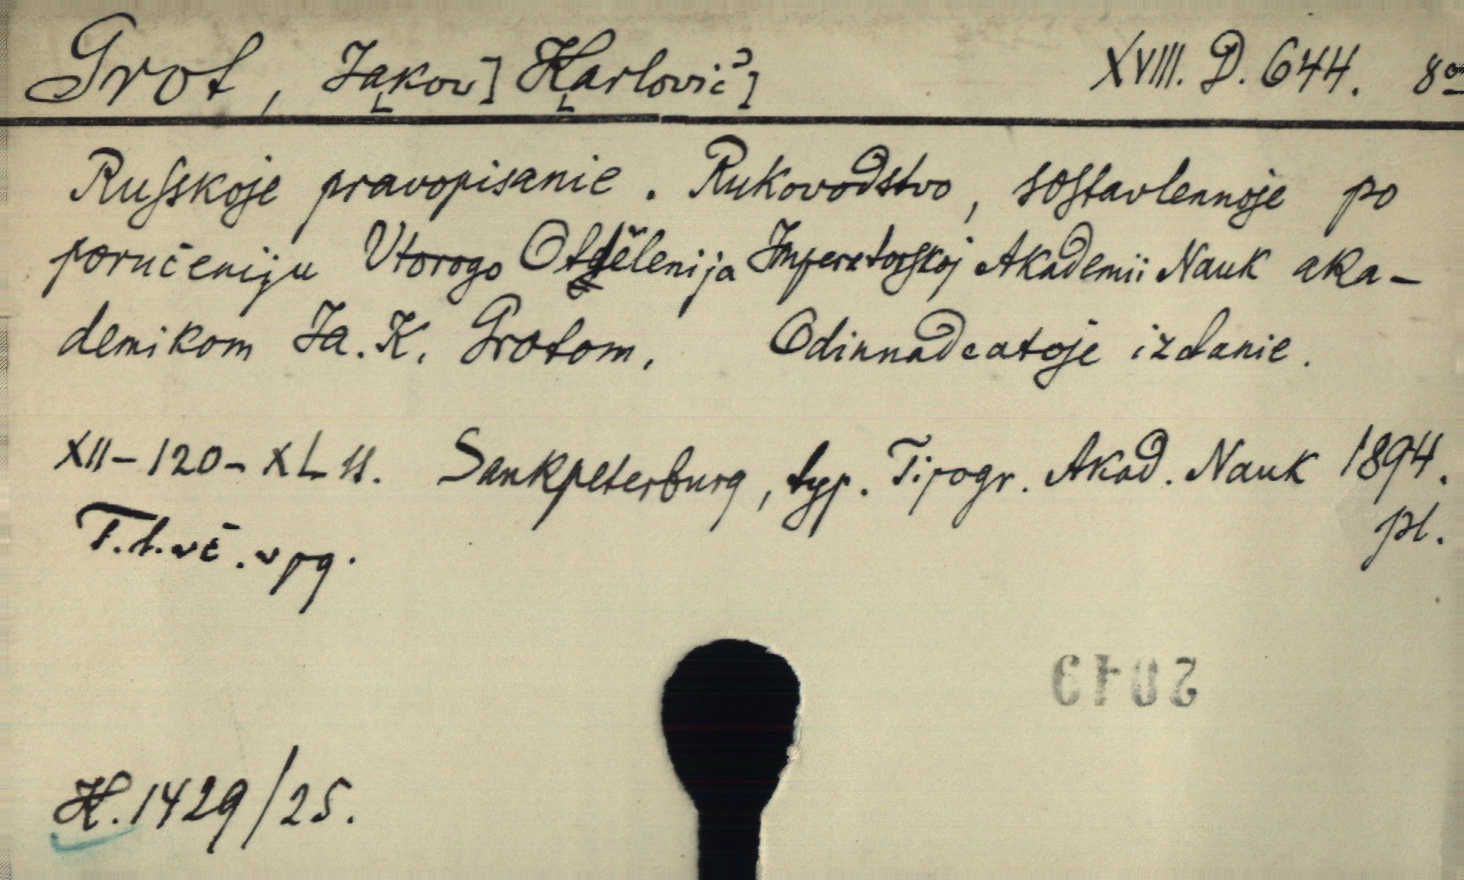 Grot, Ja[kow] K[arlovič] XVIII. D. 644. 8º
Ruſskoje pravopisanie. Rukovodstvo, soſtavlennoje po
poručeniju Vtorogo Otdělenija Imperatorſkoj Akademii Nauk aka-
demikom Ja. K. Grotom. Odinnadcatoje izdanie.
XII-120-XL 11. Sankpeterburg, typ. Tipogr. Akad. Nauk 1894.
pl.
H. 1429/25.